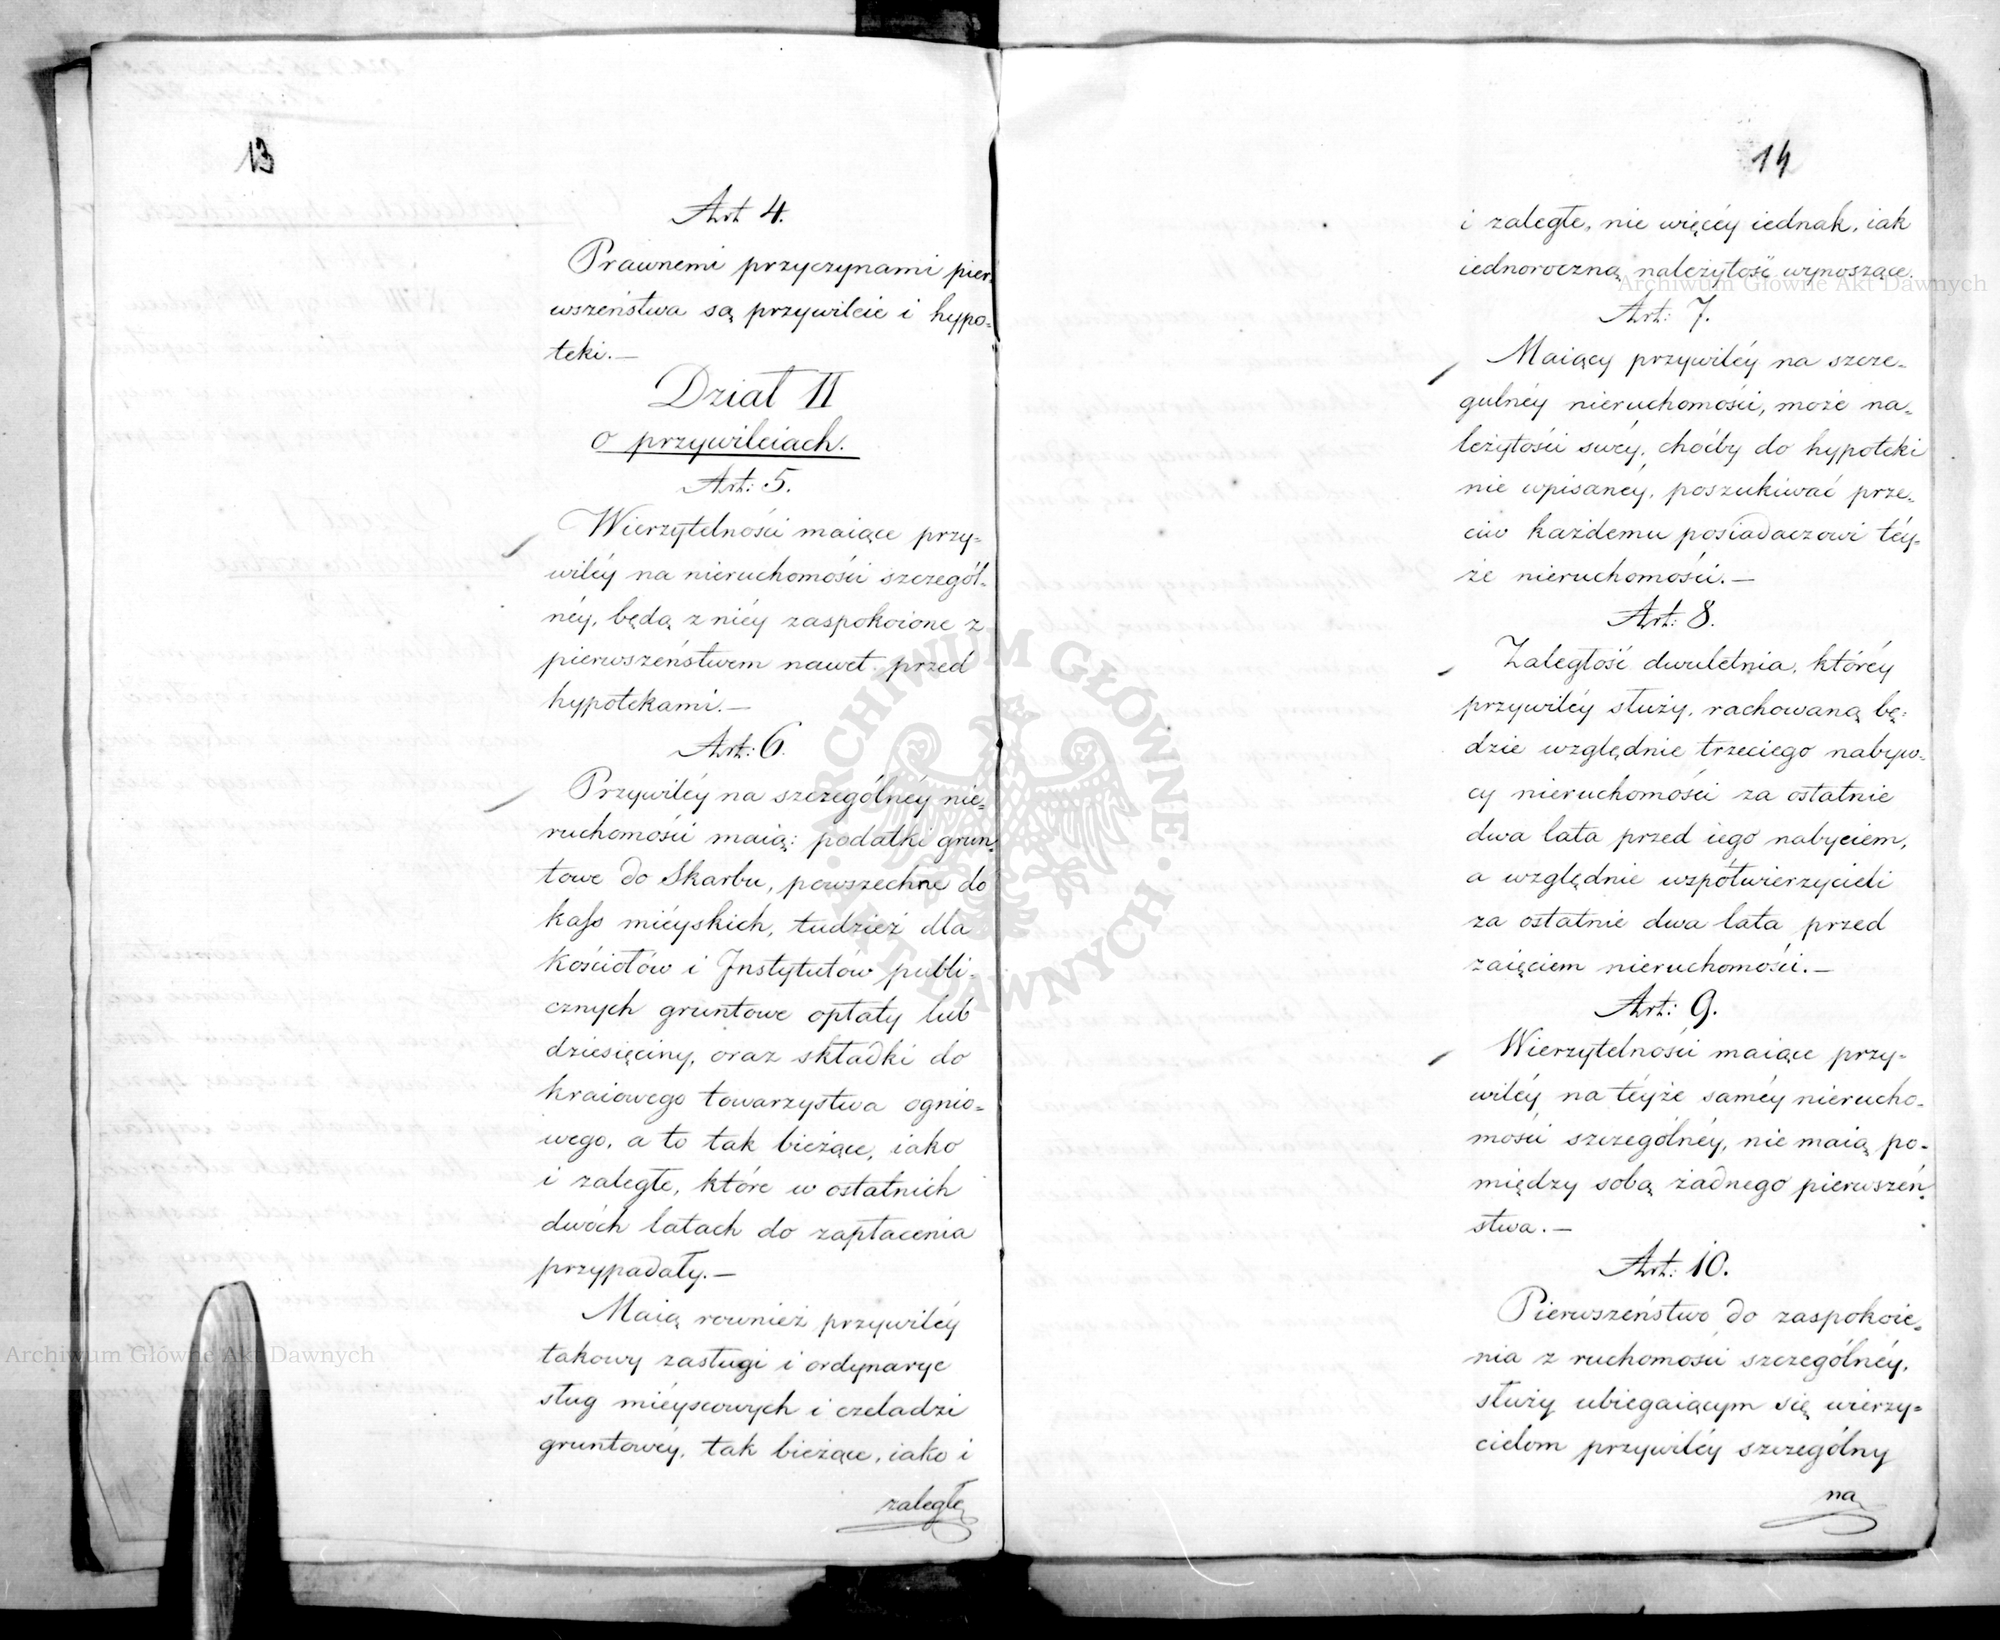 13
Art 4.
Prawnemi przyczynami pier-
wszeństwa są przywileie i hypo-
teki.—
Dział II
o przywileiach.
Art: 5.
Wierzytelności maiące przy-
wiléy na nieruchomości szczegól-
néy, będą z niéy zaspokoione z
pierwszeństwem nawet przed
hypotekami.—
Art: 6.
Przywiléy na szczególnéy nie-
ruchomości maią: podatki grun-
towe do Skarbu, powszechne do
kass miéyskich, tudzież dla
Kościołów i Instytutów publi-
cznych gruntowe opłaty lub
dziesięciny, oraz składki do
kraiowego towarzystwa ognio-
wego, a to tak bieżące, iako
i zaległe, które w ostatnich
dwóch latach do zapłacenia
przypadały.—
Maią rownież przywiléy
takowy zasługi i ordynarye
sług miéyscowych i czeladzi
gruntowéy, tak bieżące, iako i
zaległe
14
i zaległe, nie więcéy iednak, iak
iednoroczną należytość wynoszące.
Art: 7.
Maiący przywiléy na szcze-
gulnéy nieruchomości, może na-
leżytości swéy, choćby do hypoteki
nie wpisanéy, poszukiwać prze-
ciw każdemu posiadaczowi téy-
że nieruchomości.—
Art: 8.
Zaległość dwuletnia, któréy
przywiléy służy, rachowaną bę-
dzie względnie trzeciego nabyw-
cy nieruchomości za ostatnie
dwa lata przed iego nabyciem,
a względnie wspótwierzycieli
za ostatnie dwa lata przed
zaięciem nieruchomości.—
Art: 9.
Wierzytelności maiące przy-
wiléy na téyże saméy nierucho-
mości szczególnéy, nie maią po-
między sobą żadnego pierwszeń-
stwa.—
Art: 10.
Pierwszeństwo do zaspokoie-
nia z ruchomości szczególnéy,
służy ubiegaiącym się wierzy-
cielom przywiléy szczególny
na
Archiwum Główne Akt Dawnych
Archiwum Główne Akt Dawnych
ARCHIWUM GŁÓWNE · AKT DAWNYCH ·